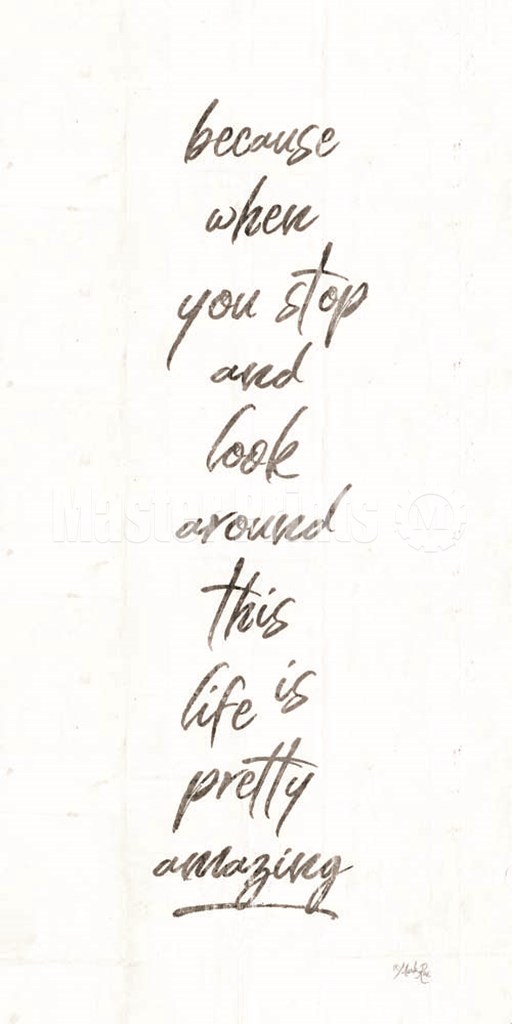 because
when
you stop
and
look
around
MasterPrints
this
life is
pretty
amazing